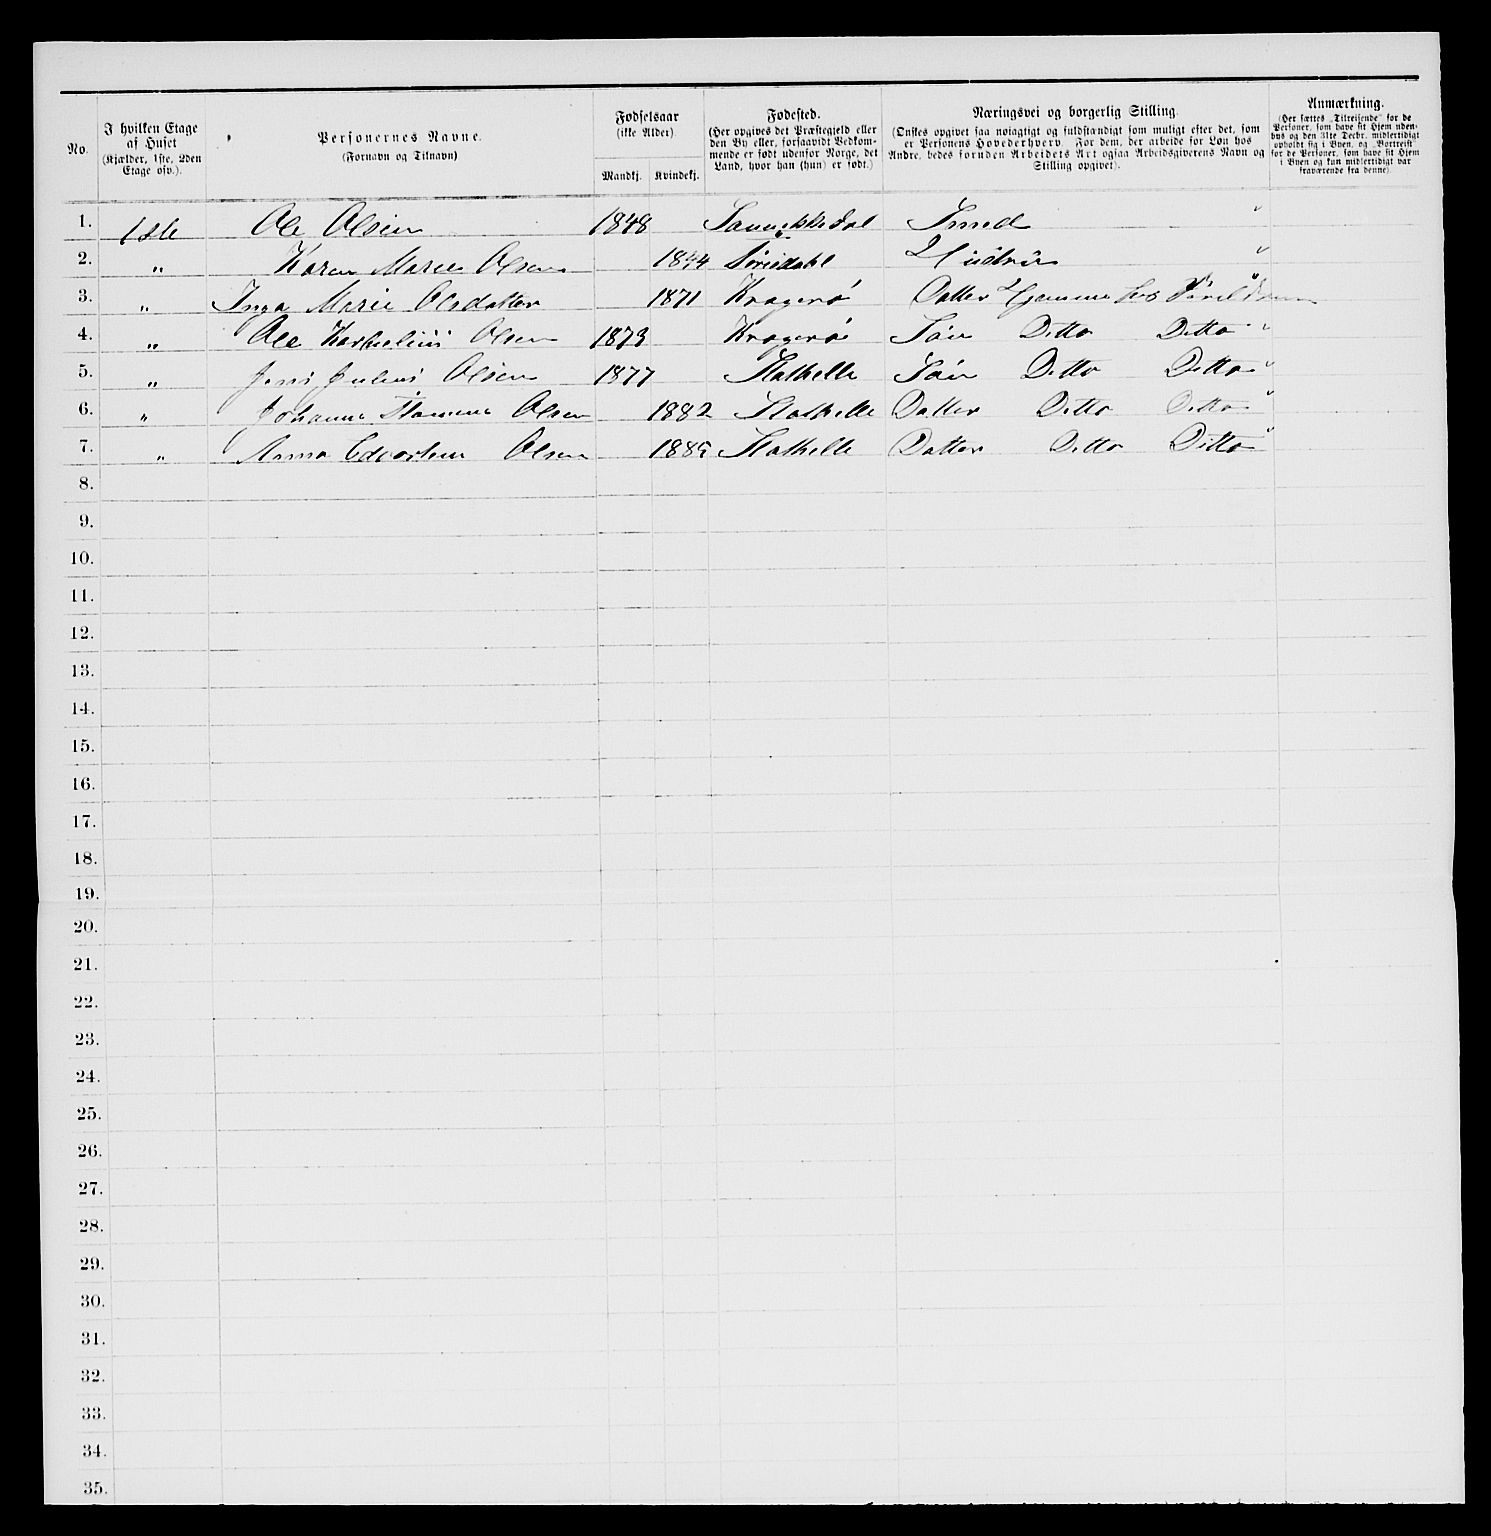 No.
I hvilken Etage
af Huset
(Kjælder, 1ste, 2den
Etage osv.).
Personernes Navne.
(Fornavn og Tilnavn)
Fødselsaar
(ikke Alder)
Mandkj. Kvindekj.
Fødested.
(Her opgives det Præstegjeld eller
den By eller, forsaavidt Vedkom-
mende er født udenfor Norge, det
Land, hvor han (hun) er født.)
Næringsvei og borgerlig Stilling.
(Ønskes opgivet saa nøiagtigt og fuldstændigt som muligt efter det, som
er Personens Hovederhverv. For dem, der arbeide for Løn hos
Andre, bedes foruden Arbeidets Art ogsaa Arbeidsgiverens Navn og
Stilling opgivet).
Anmærkning.
(Her sættes „Tilreisende“ for de
Personer, som have sit Hjem uden-
bys og den 31te Decbr. midlertidigt
opholdt sig i Byen, og „Bortreist“
for de Personer, som have sit Hjem
i Byen og kun midlertidigt var
fraværende fra denne).
1. 1ste Ole Olsen 1848 Sannikkedal Smed "
2. " Karen Marie Olsen 1844 Hustru "
3. " Inga Marie Olsdatter 1871 Kragerø Datter Hjemme hos Foreldrene "
4. " Ole Olsen 1873 Kragerø Søn Ditto Ditto "
5. " Jens Julius Olsen 1877 Stathelle Søn Ditto Ditto "
6. " Johanne Olsen 1882 Stathelle Datter Ditto Ditto "
7. " Anna Olsen 1885 Stathelle Datter Ditto Ditto "
8.
9.
10.
11.
12.
13.
14.
15.
16.
17.
18.
19.
20.
21.
22.
23.
24.
25.
26.
27.
28.
29.
30.
31.
32.
33.
34.
35.